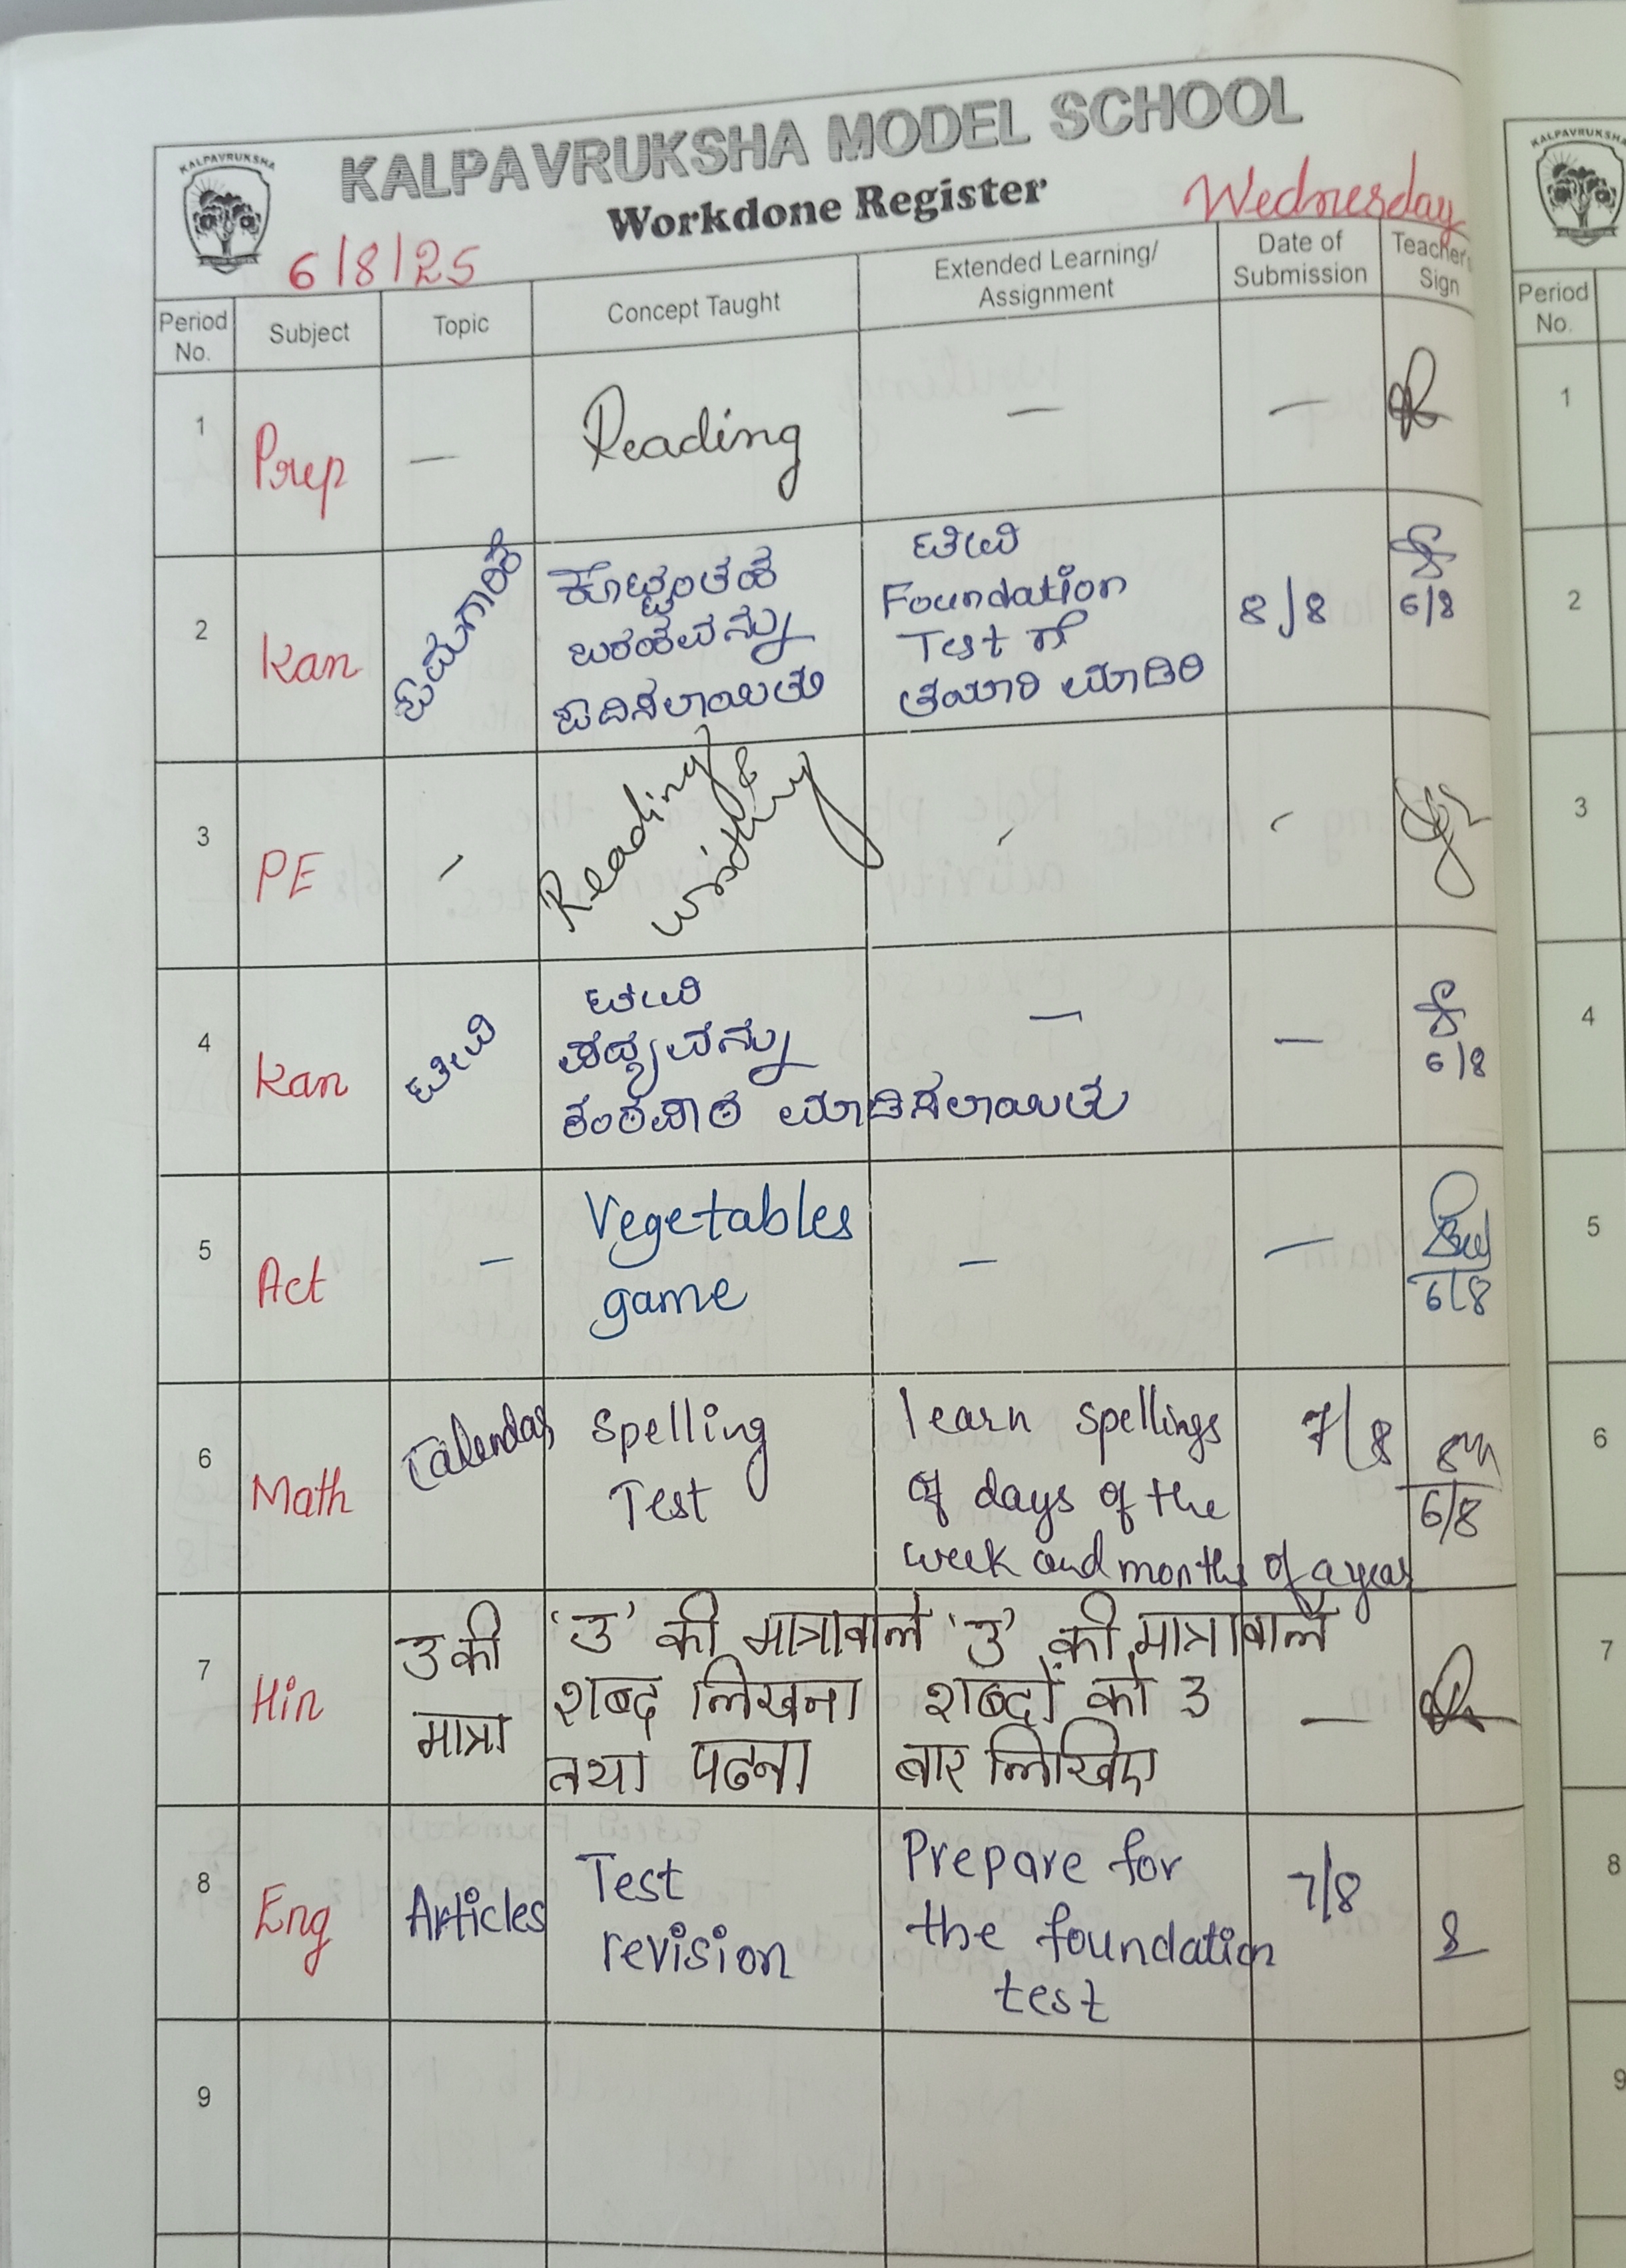 KALPAVRUKSHA
KALPAVRUKSHA MODEL SCHOOL
Workdone Register
Wednesday
6/8/25
Period No. Subject Topic Concept Taught Extended Learning/ Assignment Date of Submission Teacher's Sign
1 Prep — Reading — —
2 Kan ಓದುಗಾರಿಕೆ
ಕೊಟ್ಟಂತಹ
ಬರಹವನ್ನು
ಓದಿಸಲಾಯಿತು
ಟೀವಿ
Foundation
Test ಗೆ
ತಯಾರಿ ಮಾಡಿರಿ
8/8
6/8
3 PE - Reading &
writing - -
4 Kan ಟೀವಿ
ಟೀವಿ
ಪದ್ಯವನ್ನು
ಕಂಠಪಾಠ ಮಾಡಿಸಲಾಯಿತು
— —
6/8
5 Act —
Vegetables
game
— —
6/8
6 Math Calendar
Spelling
Test
learn spellings
of days of the
week and months of a year
7/8
6/8
7 Hin
उ की
मात्रा
'उ' की मात्रावाले
शब्द लिखना
तथा पढना
'उ' की मात्रावाले
शब्दों को 3
बार लिखिए
—
8 Eng Articles
Test
revision
Prepare for
the foundation
test
7/8
9
KALPAVRUKSHA
Period
No.
1
2
3
4
5
6
7
8
9